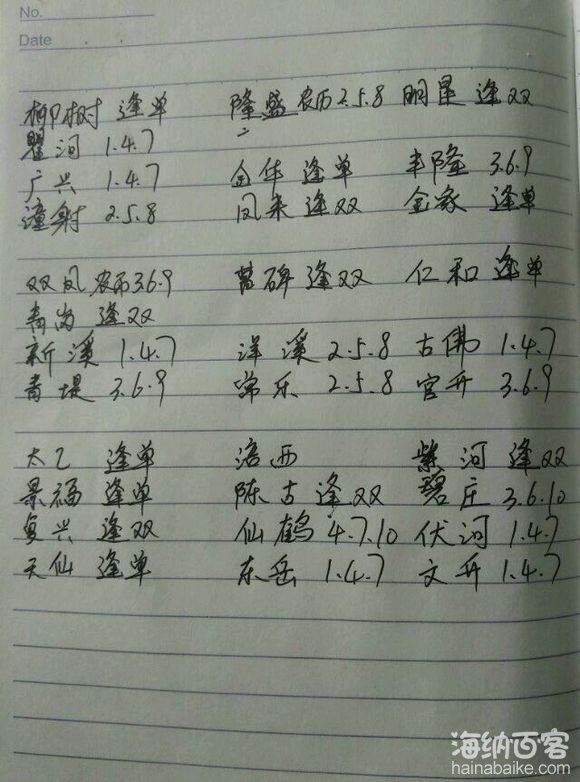 No.
Date
柳树 逢单 隆盛 农历2.5.8 明星 逢双
瞿河 1.4.7
广兴 1.4.7 金华 逢单 丰隆 3.6.9
潼射 2.5.8 凤来 逢双 金家 逢单
双凤 农历3.6.9 曹碑 逢双 仁和 逢单
青岗 逢双
新溪 1.4.7 洋溪 2.5.8 古佛 1.4.7
青堤 3.6.9 常乐 2.5.8 官升 3.6.9
太乙 逢单 涪西 紫河 逢双
景福 逢单 陈古 逢双 碧庄 3.6.10
复兴 逢双 仙鹤 4.7.10 伏河 1.4.7
天仙 逢单 东岳 1.4.7 文升 1.4.7
海纳百客
hainabaike.com